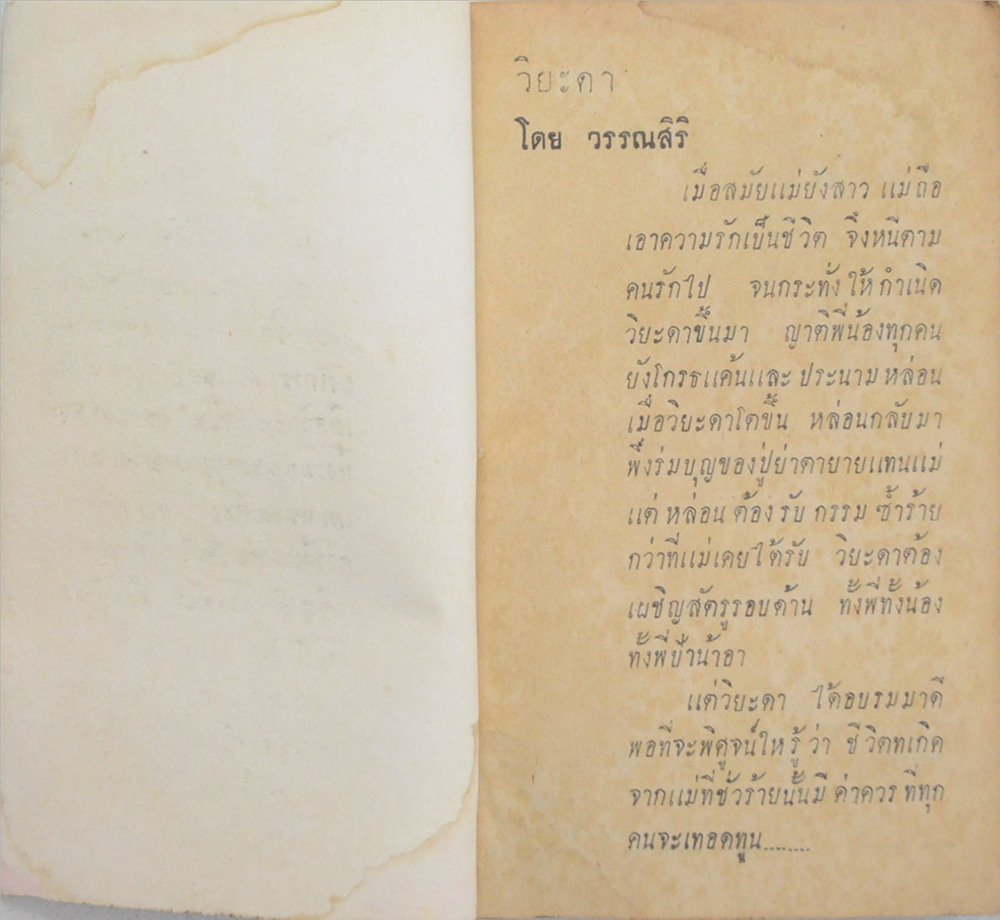 วิยะดา
โดย วรรณสิริ
เมื่อสมัยแม่ยังสาว แม่ถือ
เอาความรักเป็นชีวิต จึงหนีตาม
คนรักไป จนกระทั่งให้กำเนิด
วิยะดาขึ้นมา ญาติพี่น้องทุกคน
ยังโกรธแค้นและประนามหล่อน
เมื่อวิยะดาโตขึ้น หล่อนกลับมา
พึ่งร่มบุญของปู่ย่าตายายแทนแม่
แต่หล่อนต้องรับกรรมซ้ำร้าย
กว่าที่แม่เคยได้รับ วิยะดาต้อง
เผชิญสัตรูรอบด้าน ทั้งพี่ทั้งน้อง
ทั้งพี่ป้าน้าอา
แต่วิยะดา ได้อบรมมาดี
พอที่จะพิศูจน์ใหรู้ว่า ชีวิตทเกิด
จากแม่ที่ชั่วร้ายนั้นมีค่าควรที่ทุก
คนจะเทอดทูน........